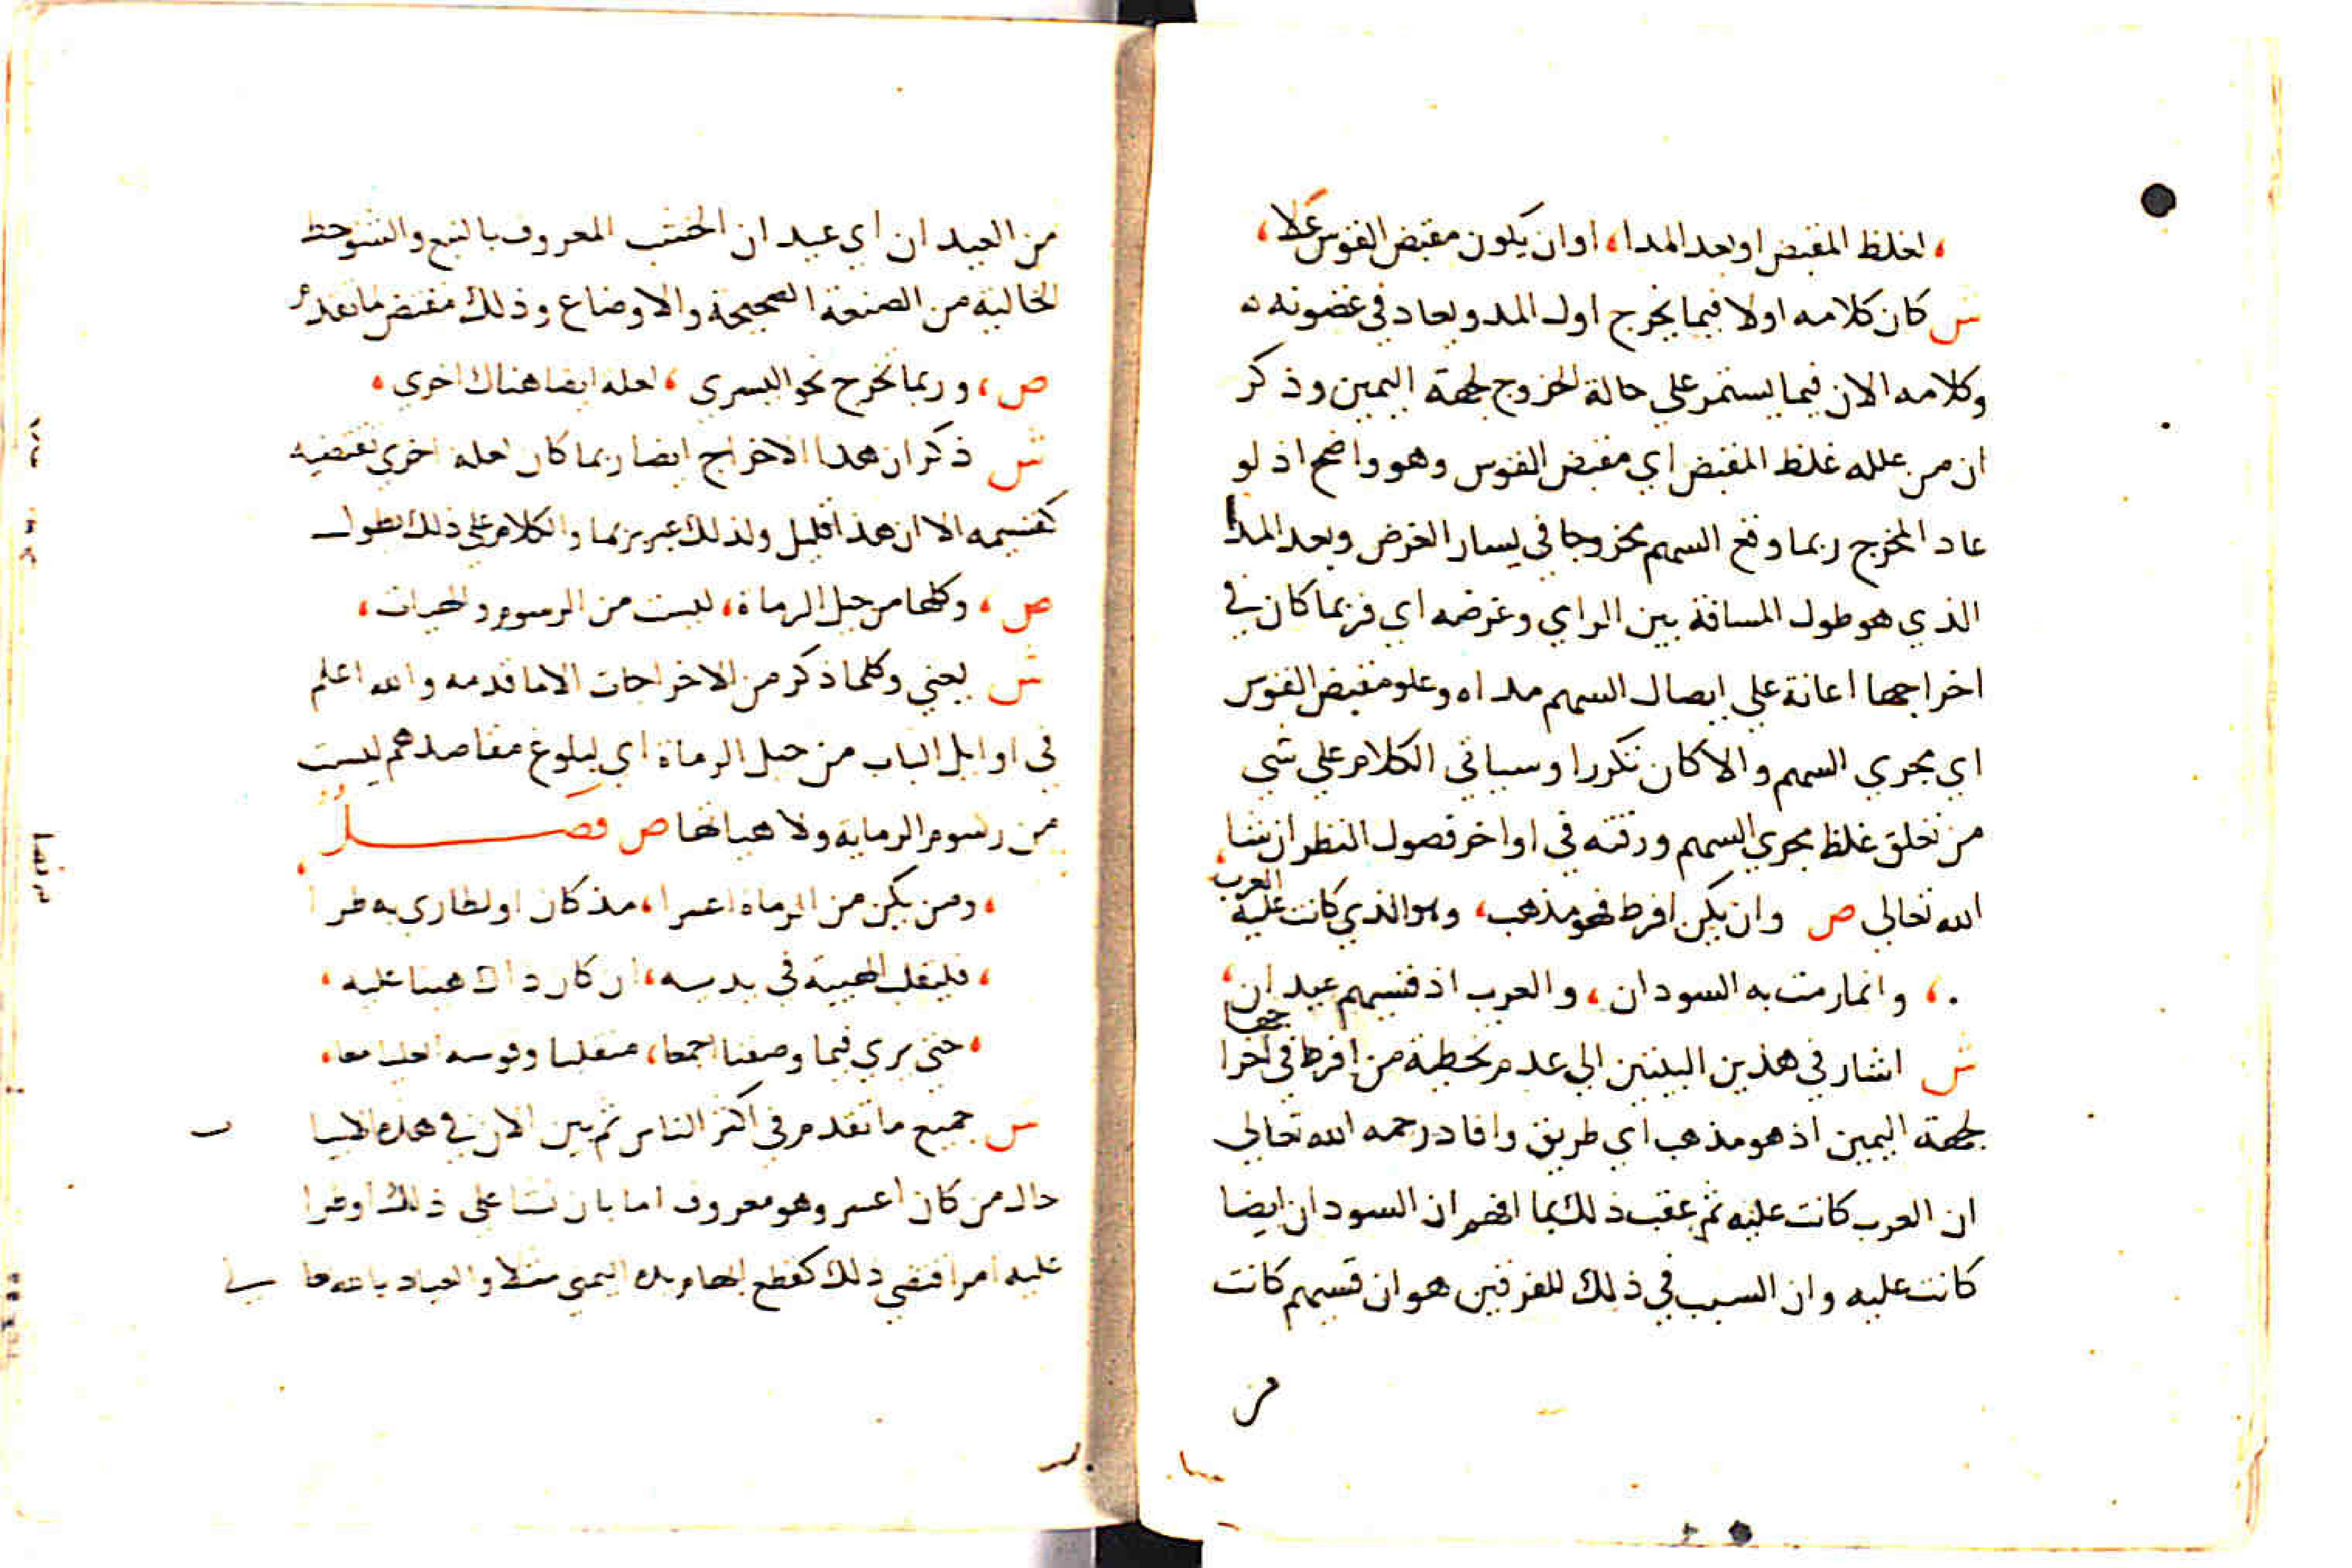 ، لغلظ المقبض او بعد المدا، او ان يكون مقبض القوس علا،
ش كان كلامه اولا فيما يخرج اول المد ويعاد في غضونه
وكلامه الان فيما يستمر علي حالة الخروج لجهة اليمين وذكر
ان من علله غلظ المقبض اي مقبض القوس وهو واضح اذ لو
عاد المخرج ربما وقع السهم مخروجا في يسار الغرض وبعد المدا
الذي هو طول المسافة بين الرامي وغرضه اي فربما كان في
اخراجها اعانة علي ايصال السهم مداه وعلو مقبض القوس
اي مجري السهم والا كان تكررا وسياتي الكلام علي شي
من تعلق غلظ مجري السهم ورقته في اواخر فصول النظر ان شا
الله تعالي ص وان يكن افرط فهو مذهب، وهو الذي كانت عليه العرب
، وانما رمت به السودان، والعرب اذ قسيهم عيدان،
ش اشار في هذين البيتين الي عدم تخطية من افرط في اخراجها
لجهة اليمين اذ هو مذهب اي طريق وافاد رحمه الله تعالي
ان العرب كانت عليه ثم عقب ذلك بما افهم ان السودان ايضا
كانت عليه وان السبب في ذلك للفرقين هو ان قسيهم كانت
من
من العيدان اي عيدان الخشب المعروف بالنبع والشوحط
الخالية من الصنعة الصحيحة والاوضاع وذلك مقتض ما
ص، وربما تخرج نحو اليسري، لعله ايضا هناك اخري،
ش ذكر ان هذا الاخراج ايضا ربما كان لعلة اخري تقتضيه
كقسيمه الا ان هذا قليل ولذلك عبر بربما والكلام علي ذلك يطول
ص، وكلها من حيل الرماة، ليست من الرسوم والهيات،
ش يعني وكلما ذكر من الاخراجات الا ما قدمه والله اعلم
في اوايل الباب من حيل الرماة اي لبلوغ مقاصدهم ليست
من رسوم الرماية ولا هياتها ص فصل
، ومن يكن من الرماة اعسرا، مذ كان او لطاري به طرا
، فلينقل الهيية في يديه، ان كان ذاك هينا عليه،
، حتي يري فيما وصفنا اجمعا، منقلبا وقوسه معا،
ش جميع ما تقدم في اكثر الناس ثم بين الان في هذه الابيات
حال من كان اعسر وهو معروف اما بان نشا علي ذلك او طرا
عليه امر اقتضي ذلك كقطع ابهام يده اليمني مثلا والعياذ بالله تعالي